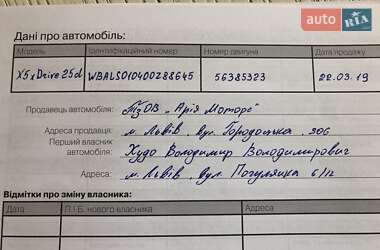 auto RIA
Дані про автомобіль:
Модель Ідентифікаційний номер Номер двигуна Дата продажу
X5 xDrive 25d WBALS010400Z88645 56385323 22.03.19
Продавець автомобіля: ТзОВ "Арія Моторс"
Адреса продавця: м. Львів, вул. Городоцька, 306
Перший власник
автомобіля: Худо Володимир Володимирович
Адреса: м. Львів, вул. Погулянка 6/12
Відмітки про зміну власника:
Дата П.І.Б. нового власника Адреса